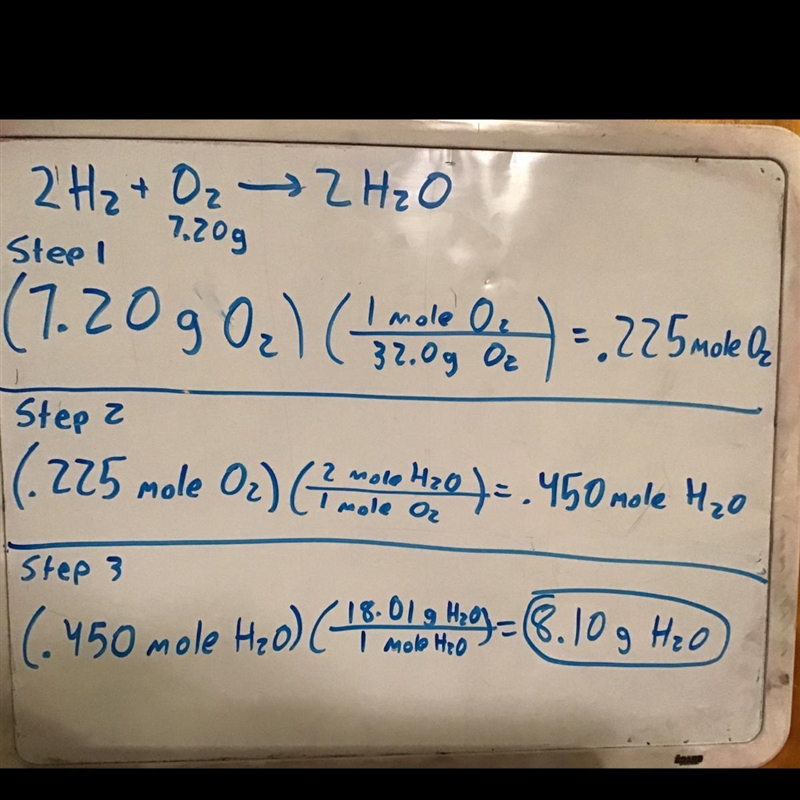 2H₂ + O₂ → 2H₂O
7.20g
Step 1
(7.20 g O₂) (1 mole O₂ / 32.0g O₂) = .225 mole O₂
Step 2
(.225 mole O₂) (2 mole H₂O / 1 mole O₂) = .450 mole H₂O
Step 3
(.450 mole H₂O) (18.01 g H₂O / 1 mole H₂O) = 8.10 g H₂O